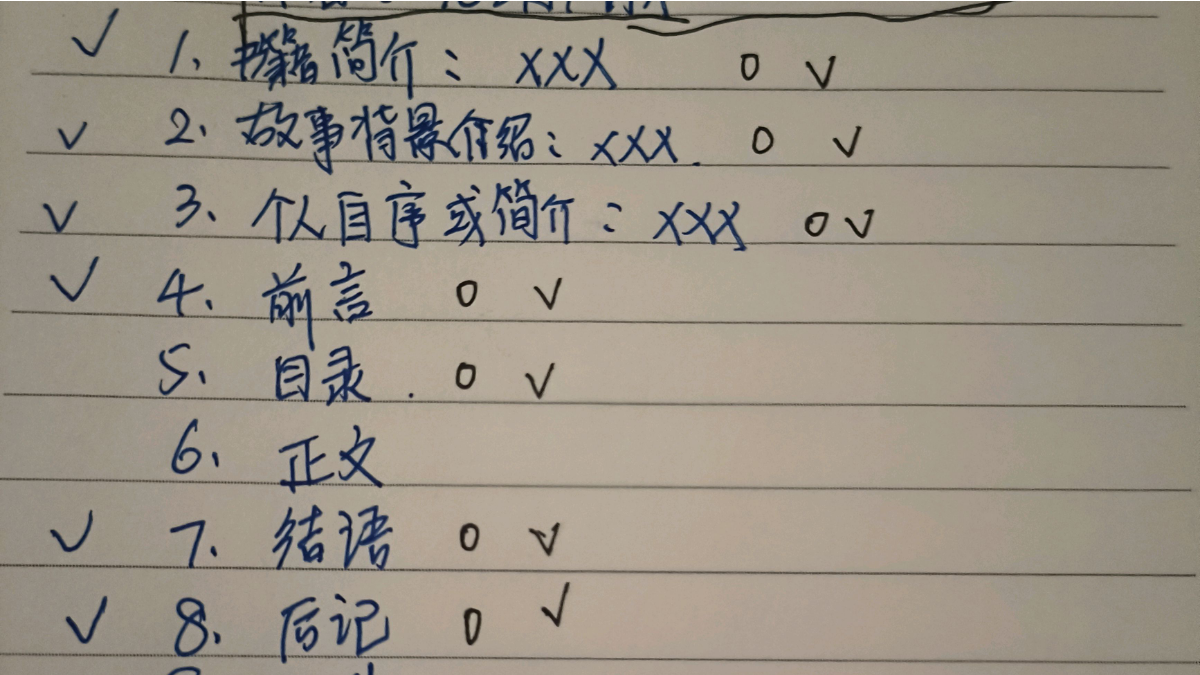 √ 1. 书籍简介：XXX O √
√ 2. 故事背景介绍：XXX. O √
√ 3. 个人自序或简介：XXX O √
√ 4. 前言 O √
5. 目录. O √
6. 正文
√ 7. 结语 O √
√ 8. 后记 O √